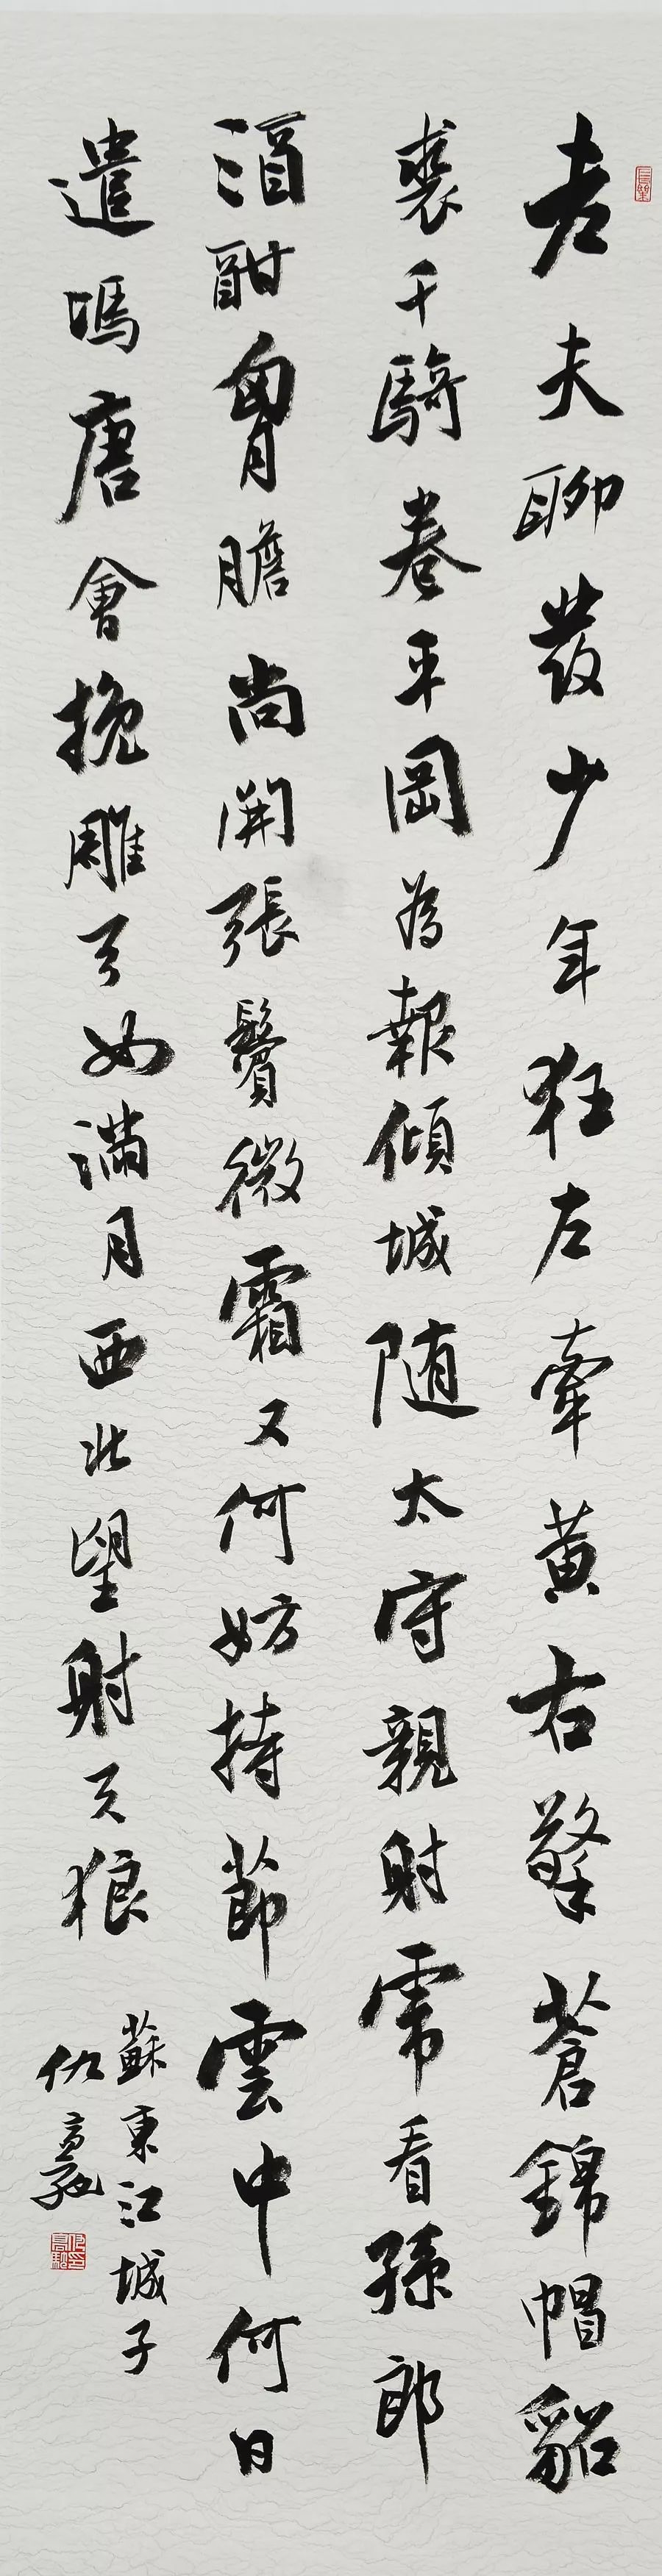 老夫聊發少年狂左牽黄右擎蒼錦帽貂
裘千騎卷平岡為報傾城随太守親射虎看孫郎
酒酣胷膽尚開張鬢微霜又何妨持節雲中何日
遣馮唐會挽雕弓如滿月西北望射天狼
蘇東江城子
仇高馳